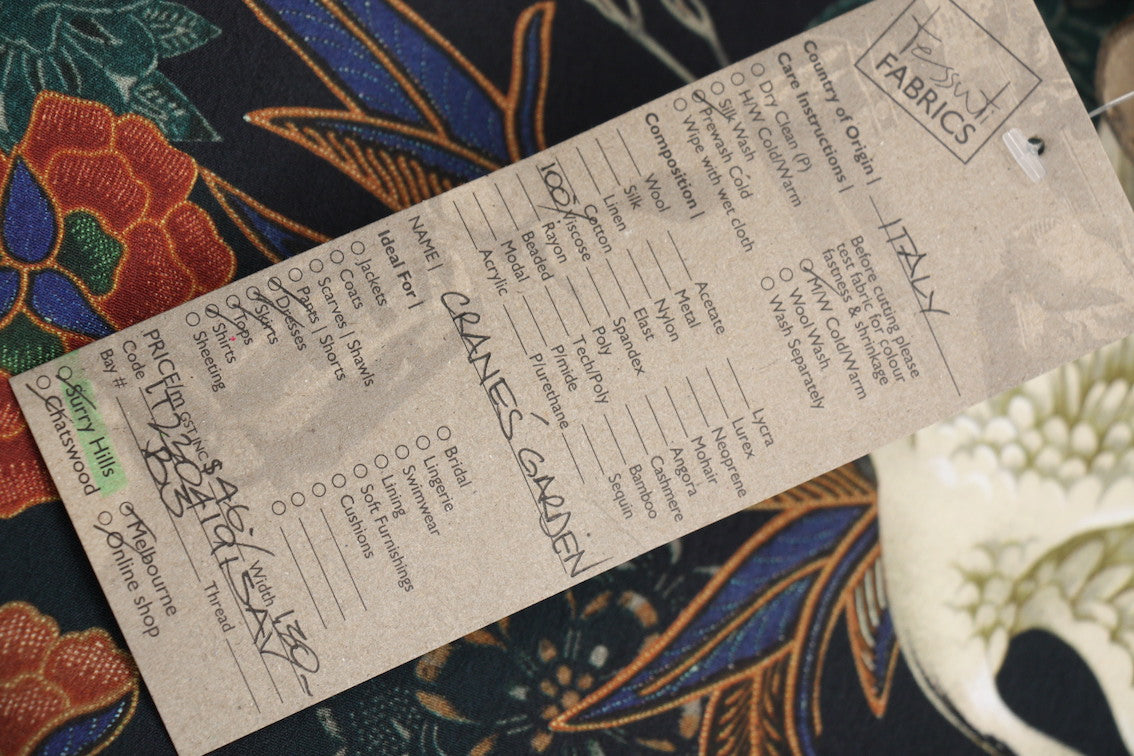 Tessuti
FABRICS
Country of Origin | ITALY
Care Instructions |
Dry Clean (P)
H/W Cold/Warm
Silk Wash
Prewash Cold
Wipe with wet cloth
Before cutting please
test fabric for colour
fastness & shrinkage
M/W Cold/Warm
Wool Wash
Wash Separately
Composition |
Wool
Silk
Linen
Cotton
100% Viscose
Rayon
Beaded
Modal
Acrylic
Acetate
Metal
Nylon
Elast
Spandex
Poly
Tech/Poly
P/mide
P/urethane
Lycra
Lurex
Neoprene
Mohair
Angora
Cashmere
Bamboo
Sequin
NAME | CRANES' GARDEN
Ideal For |
Jackets
Coats
Scarves | Shawls
Pants | Shorts
Dresses
Skirts
Tops
Shirts
Sheeting
Bridal
Lingerie
Swimwear
Lining
Soft Furnishings
Cushions
PRICE/m GST INC $46/ Width 1330
Code
Bay # D3 Thread
Surry Hills
Chatswood
Melbourne
Online shop